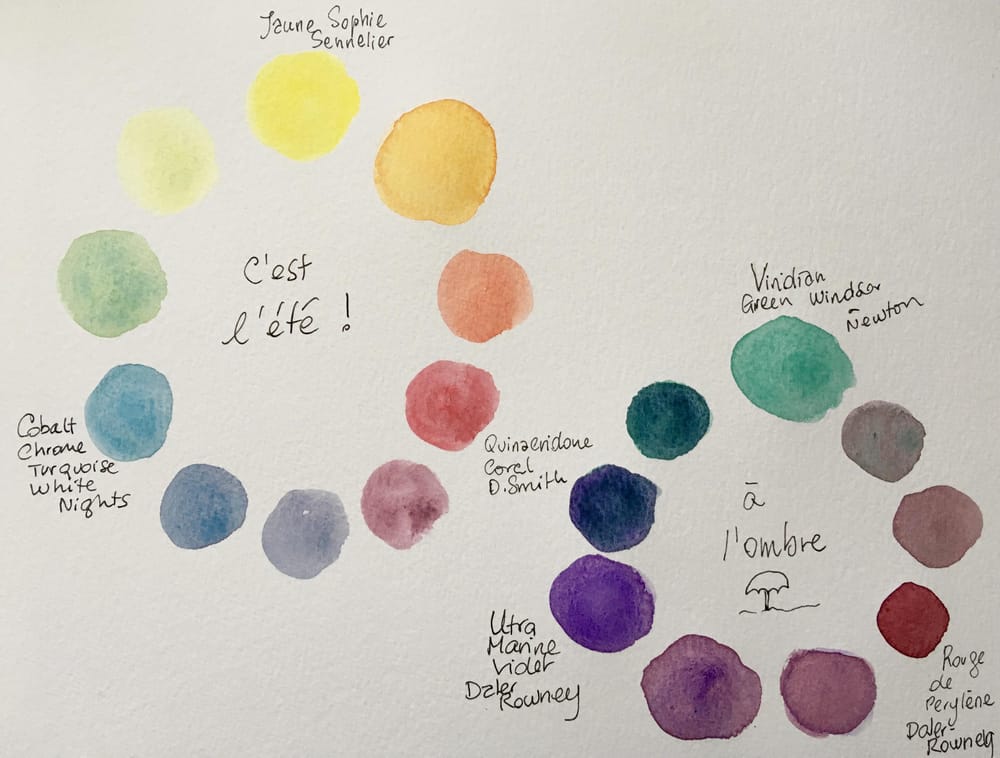 Jaune Sophie
Sennelier
C'est
l'été !
Cobalt
Chrome
Turquoise
White
Nights
Quinacridone
Coral
D.Smith
Viridian
Green Windsor
Newton
à
l'ombre
Utra
Marine
Violet
Daler
Rowney
Rouge
de
Perylène
Daler-
Rowney